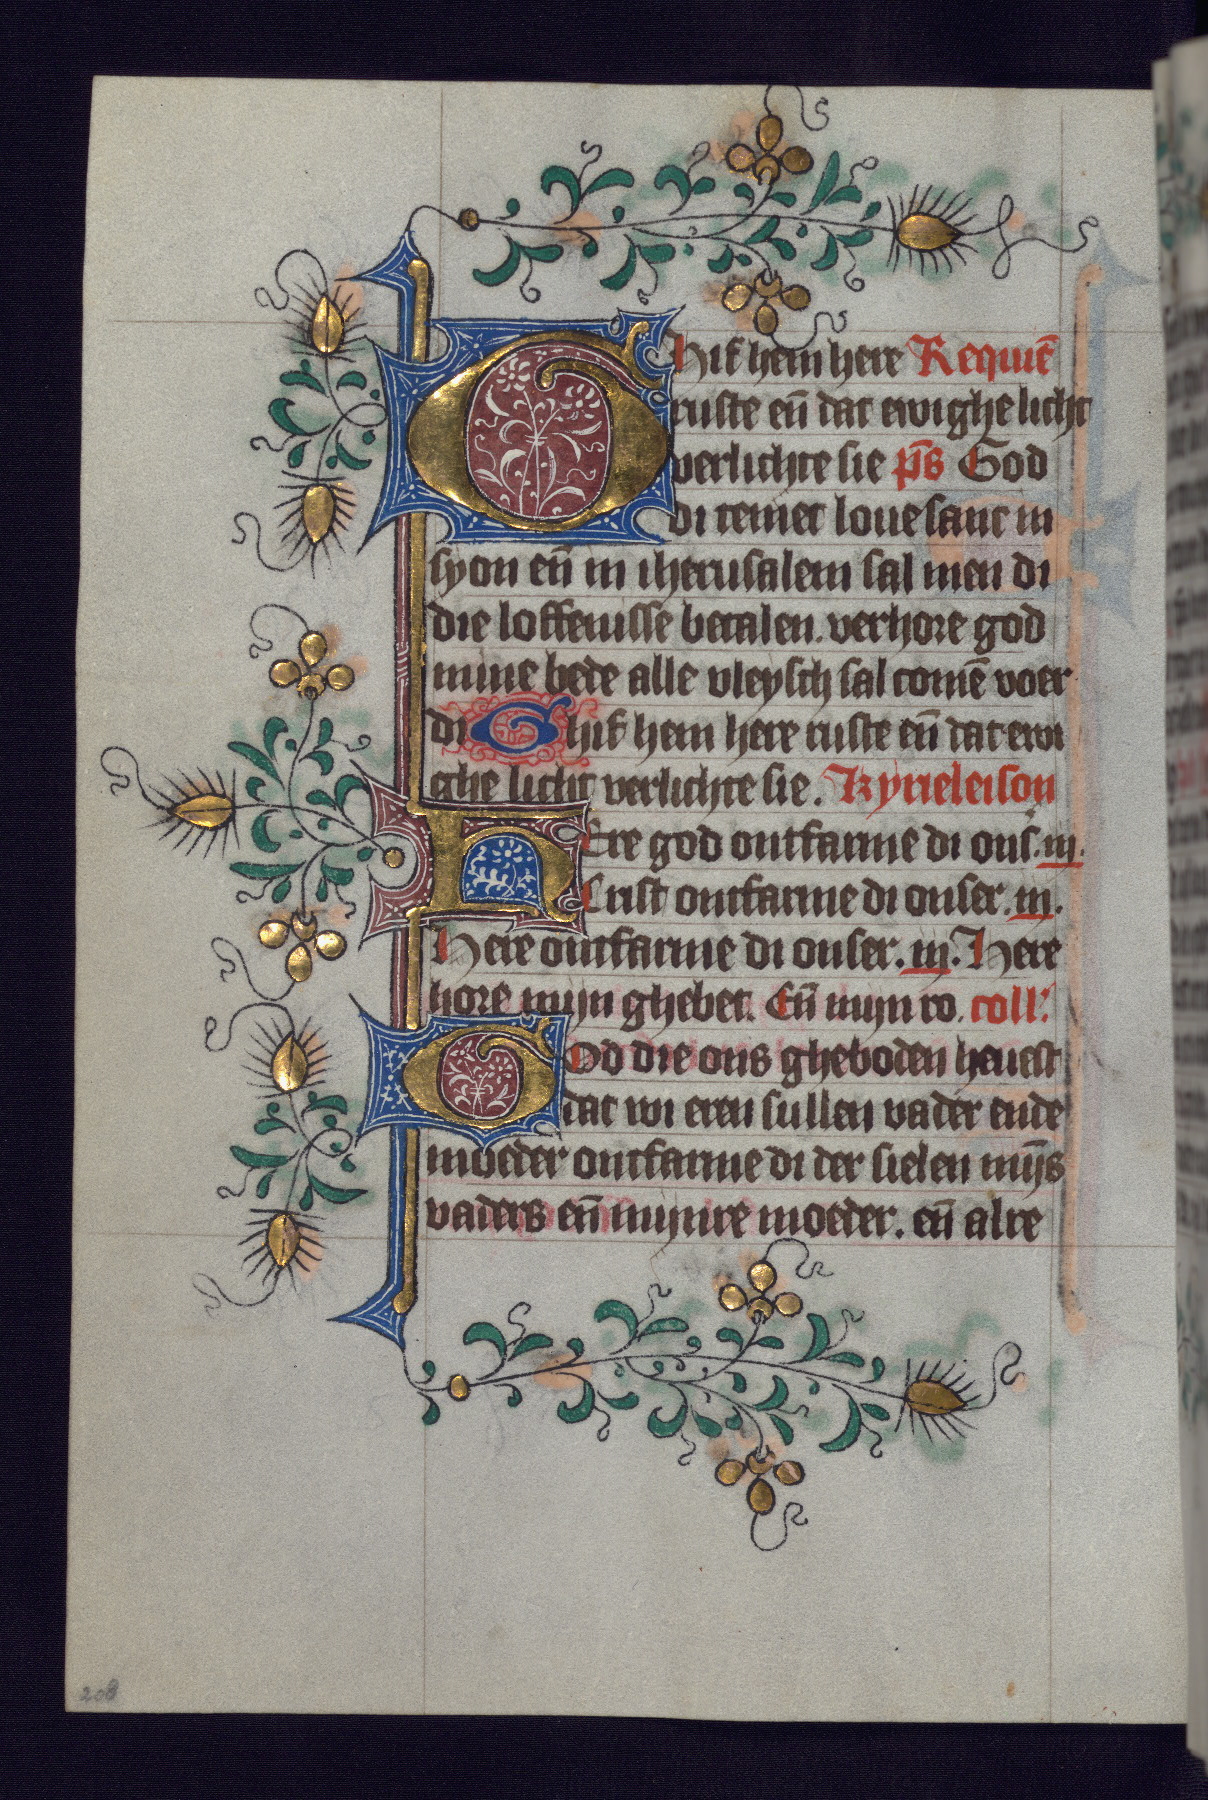 Ghif hem here Requiē
ruste en̄ dat ewighe licht
verlichte sie p̄s God
di temet loue sanc in
syon en̄ in iherusalem sal men di
die loffenisse betalen. verhore god
mine bede alle vleysch sal comē voer
di Ghif hem here ruste en̄ dat ewi
ghe licht verlichte sie. Kyrieleison
Here god ontfarme di ons. iij.
Crist ontfarme di onser. iij.
Here ontfarme di onser. iij. Here
hore mijn ghebet. En̄ mijn ro. coll'
God die ons gheboden heuest
dat wi eren sullen vader ende
moeder ontfarme di der sielen mijs
vaders en̄ mijnre moeder. en̄ alre
208